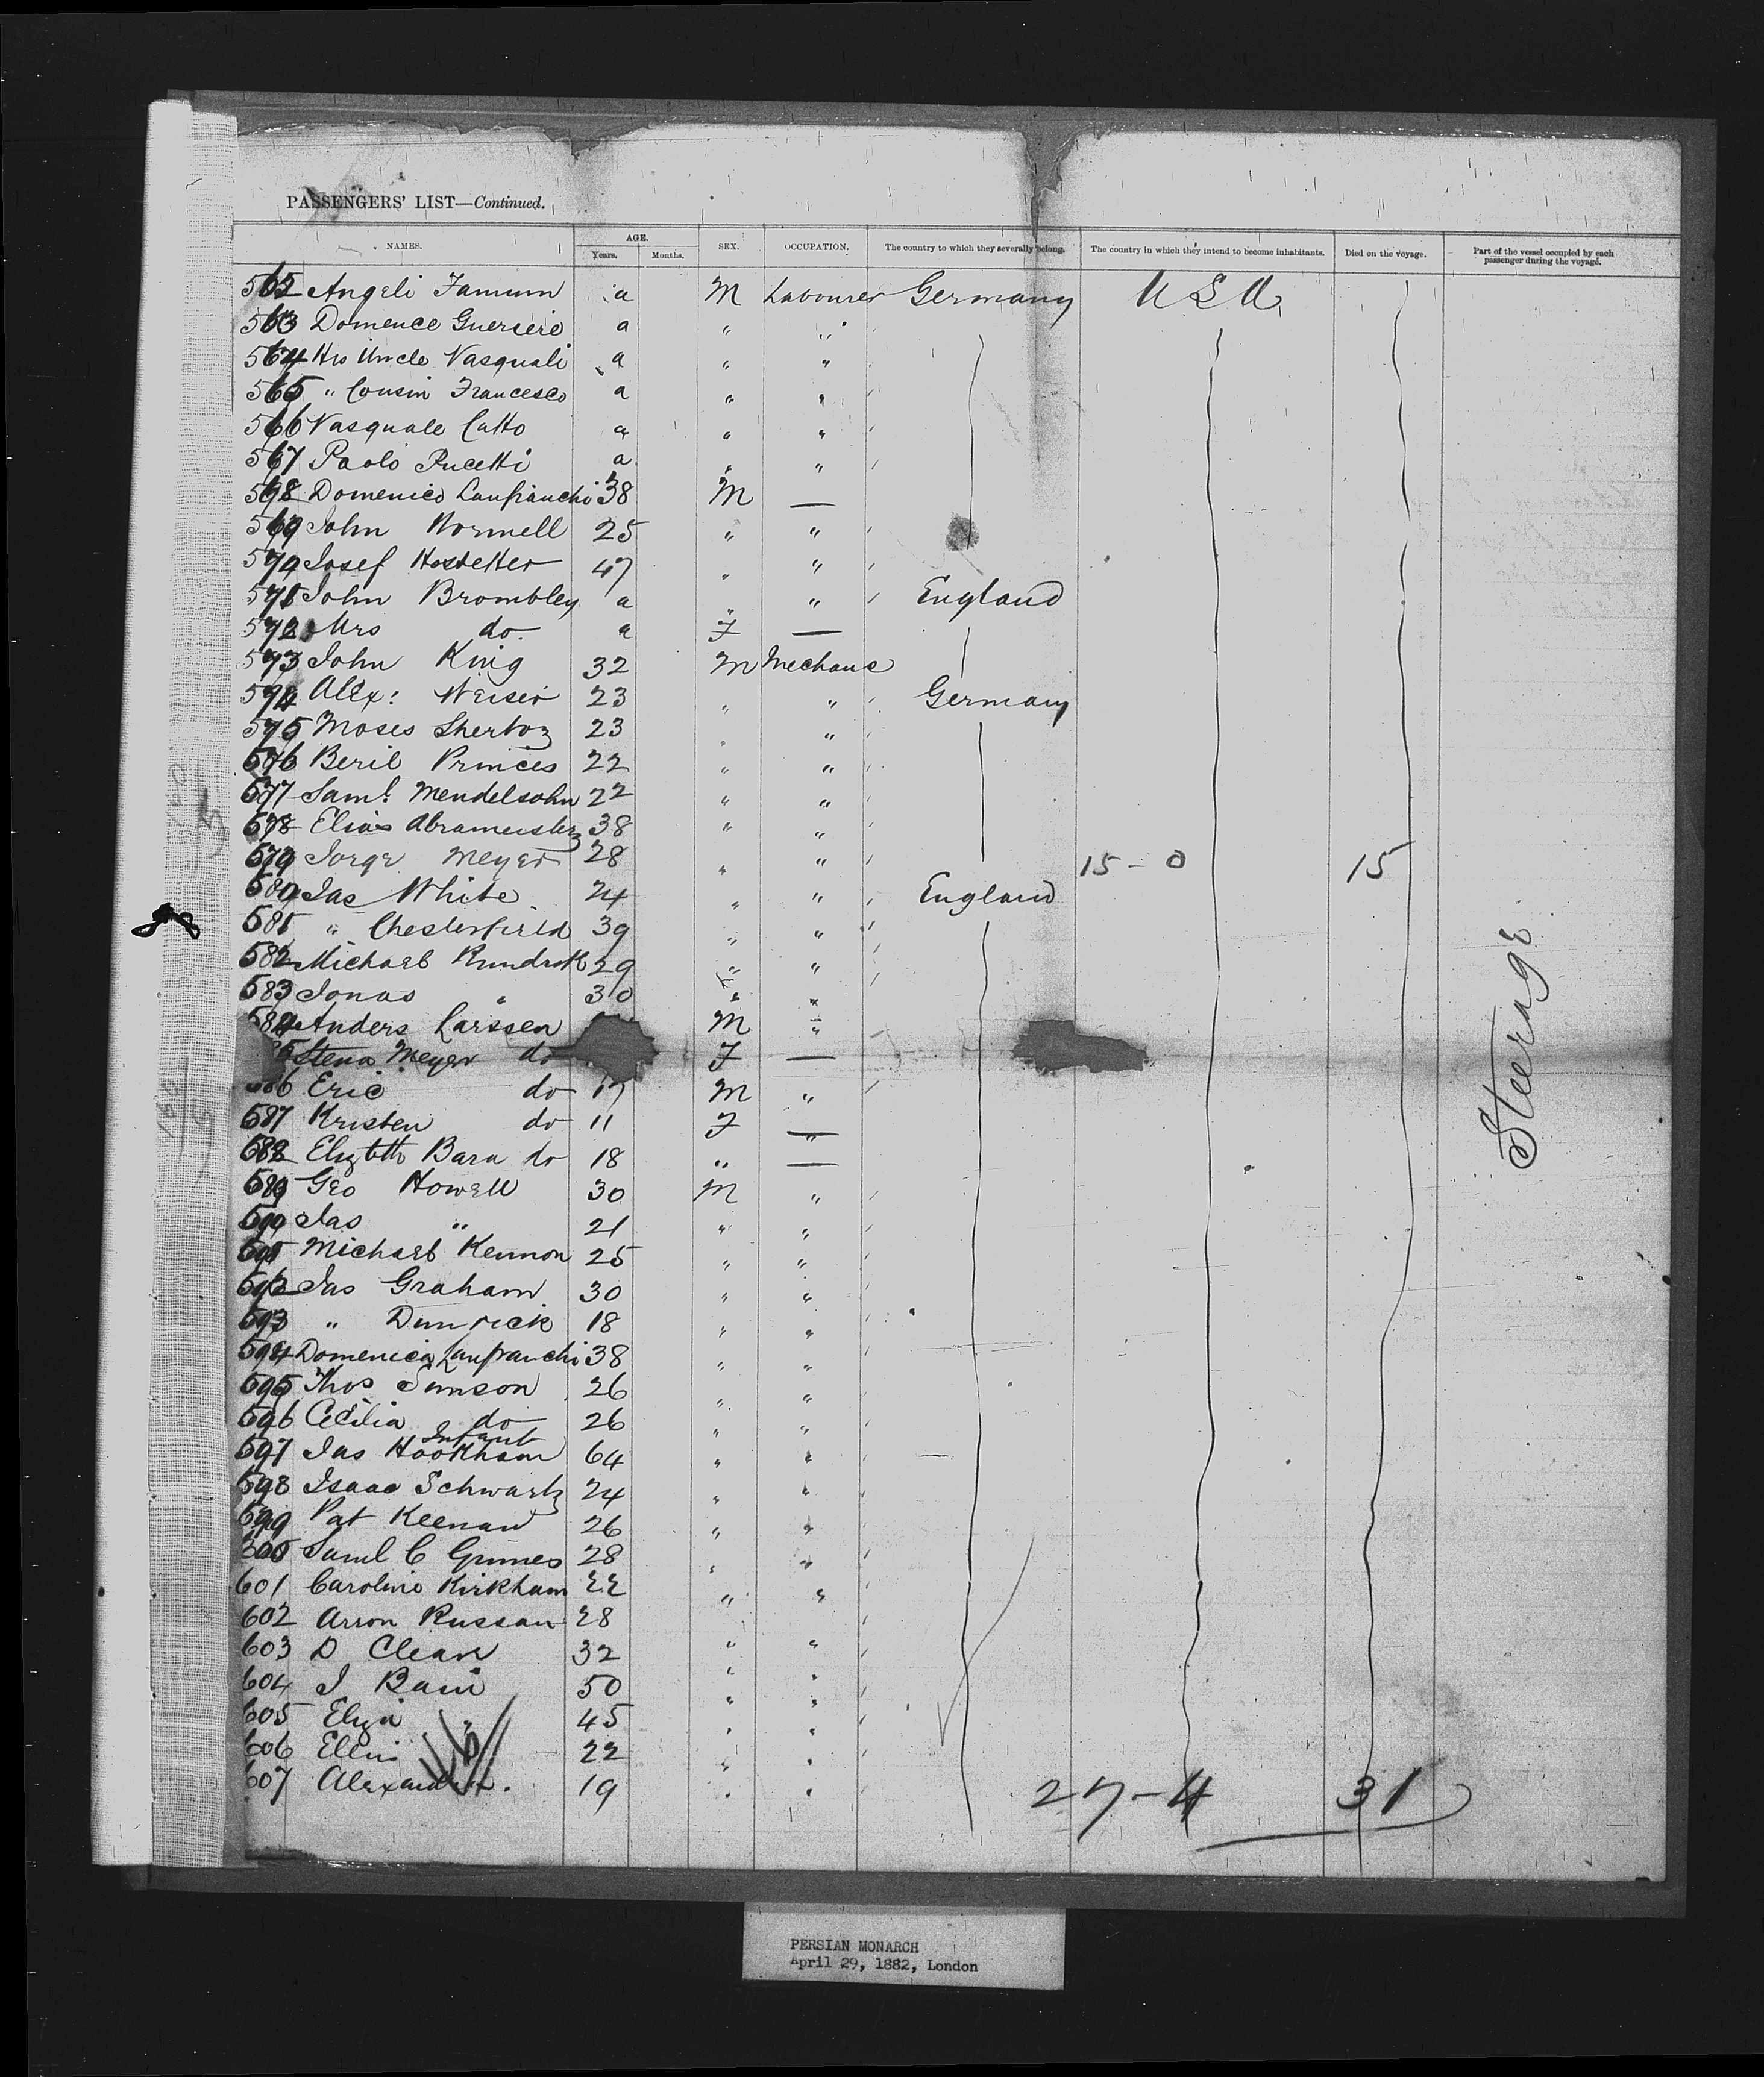 PASSENGERS' LIST—Continued.
NAMES. AGE. Years. Months. SEX. OCCUPATION. The country to which they severally belong. The country in which they intend to become inhabitants. Died on the voyage. Part of the vessel occupied by each passenger during the voyage.
562 Angeli a M Labourer Germany U S A
563 Domence Guerseie a " "
564 His Uncle Vasquali a " "
565 " Cousin Francesco a " "
566 Vasquale Catto a " "
567 Paolo Pucetti a " "
568 Domenico Lanfranchi 38 M —
569 John Wormell 25 " "
570 Josef Hostetter 47 " "
571 John Brombley a " " England
572 Mrs do. a F —
573 John King 32 M Mechanc
574 Alex: Weiser 23 " " Germany
575 Moses Shertoz 23 " "
576 Beril Princes 22 " "
577 Saml. Mendelsohn 22 " "
578 Elias Abrameister 38 " "
579 Jorge Meyer 28 " " 15-0 15
580 Jas White 24 " " England
581 " Chesterfield 39 " "
582 Michael 29 " "
583 Jonas " 30 " "
584 Anders Larssen M "
Stena Meyer do F —
586 Eric do 17 M "
587 Kristen do 11 F —
588 Elizbth Bara do 18 " —
589 Geo Howell 30 M "
590 Jas " 21 " "
591 Michael Kennon 25 " "
592 Jas Graham 30 " "
593 " Dunrick 18 " "
594 Domenica Lanfranchi 38 " "
595 Thos Simson 26 " "
596 Cecilia do 26 " "
Infant
597 Jas Hookham 64 " "
598 Isaac Schwartz 24 " "
599 Pat Keenan 26 " "
600 Saml C Grimes 28 " "
601 Caroline Kirkham 22 " "
602 Arron Russan 28
603 D Clean 32 " "
604 J Bain 50 " "
605 Eliza " 45 " "
606 Ellen 22 " "
607 Alexander. 19 " "
27-4 31
Steerage
PERSIAN MONARCH
April 29, 1882, London